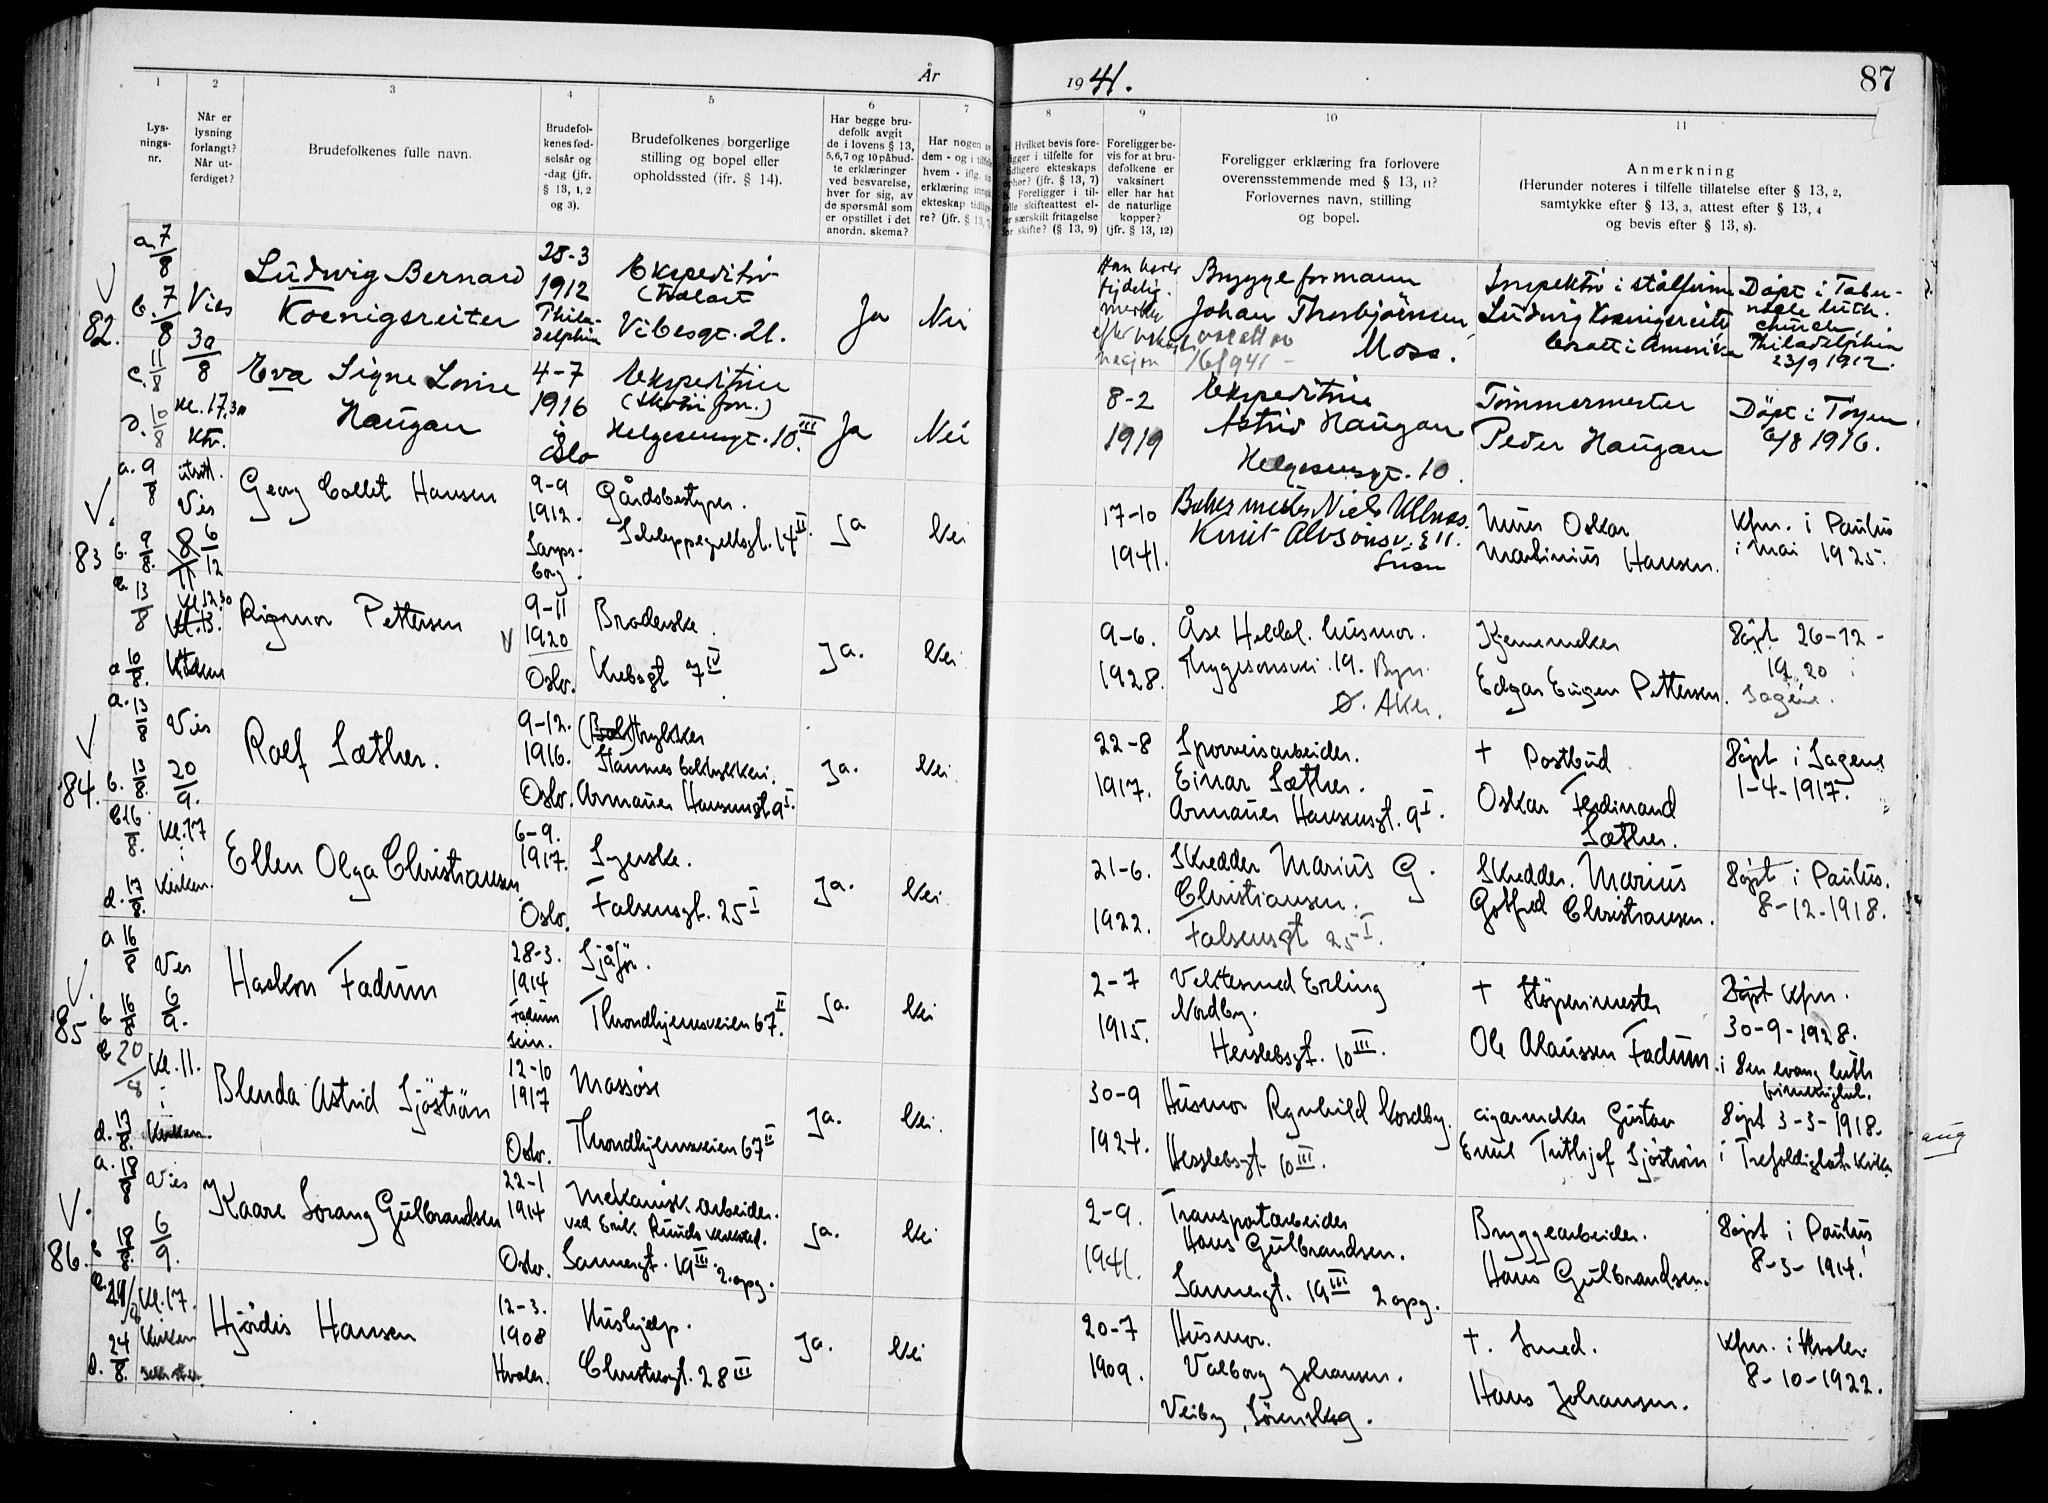 År 1941.
87
1
2
3
4
5
6
7
8
9
10
11
Lys-
nings-
nr.
Når er
lysning
forlangt?
Når ut-
ferdiget?
Brudefolkenes fulle navn.
Brudefol-
kenes fød-
selsår og
-dag (jfr.
§ 13, 1, 2
og 3).
Brudefolkenes borgerlige
stilling og bopel eller
opholdssted (ifr. § 14).
Har begge bru-
defolk avgit
de i lovens § 13,
5, 6, 7 og 10 påbud-
te erklæringer
ved besvarelse,
hver for sig, av
de spørsmål som
er opstillet i det
anordn. skema?
Har nogen
dem - og i
hvem - iflg.
erklæring
ekteskap
re? (jfr. § 13,
Hvilket bevis fore-
ligger i tilfelle for
tidligere ekteskaps
ophør? (jfr. § 13, 7)
Foreligger i til-
felle skifteattest el-
ler særskilt fritagelse
for skifte? (§ 13, 9)
Foreligger be-
vis for at bru-
defolkene er
vaksinert
eller har hat
de naturlige
kopper?
(jfr. § 13, 12)
Foreligger erklæring fra forlovere
overensstemmende med § 13, 11?
Forlovernes navn, stilling
og bopel.
Anmerkning
(Herunder noteres i tilfelle tillatelse efter § 13, 2,
samtykke efter § 13, 3, attest efter § 13, 4
og bevis efter § 13, 8).
82.
a. 7/8
b. 7/8
c. 11/8
Vies
30/8
Kl. 17.30
Ludwig Bernard
Koenigsreiter
28-3
1912
Phila-
delphia
Ekspeditør
Vibesgt. 21.
Ja
Nei
Bryggeformann
Johan Thorbjörnsen
Moss.
Inspektör i stålfirma
Ludwig Koenigsreiter
bosatt i Amerika
Döpt i Taber-
nacle luth.
church,
Philadelphia
23/9 1912.
Eva Signe Lovise
Haugan
4-7
1916
i
Oslo
Ekspeditrise
Helgesensgt. 10 III
Ja
Nei
8-2
1919
Ekspeditrise
Astrid Haugan
Helgesensgt. 10.
Tömmermester
Peder Haugan
Döpt i Töyen
6/8 1916.
83
a. 9/8
Vies
6/12
Kl. 12.30
Kl. 13.
Georg Collet Hansen
9-9
1912.
Sarps-
borg.
Gårdsbestyrer.
Schleppegrellsgt. 14 II
Ja
Nei
17-10
1941.
Bakermester Niels Ullnæs.
Knut Alvsonsv. 11.
Murer Oskar
Martinius Hansen.
Kfm. i Paulus
i mai 1925.
Rigmor Pettersen
9-11
1920
Oslo.
Broderske.
Krebsgt 7 IV
Ja.
Nei
9-6.
1928.
Åse Heldal. husmor.
Thygesonsvei. 19. Bryn.
Ø. Aker.
Edgar Eugen Pettersen.
Döpt 26-12-
1920 i
Sagene.
84.
a. 13/8
b. 13/8
c. 16/8
d. 17/8
Vies
20/9.
Kl. 17
i
Kirken.
Rolf Sæther.
9-12.
1916.
Oslo.
(Bok)trykker
Armauer Hansensgt 9 I.
Ja.
Nei.
22-8
1917.
Sporveisarbeider.
Einar Sæther.
Armauer Hansensgt. 9 I.
+ Postbud.
Oskar Ferdinand
Sæther.
Döpt i Sagene
1-4-1917.
Ellen Olga Christiansen
6-9.
1917.
Oslo.
Syerske.
Falsensgt. 25 I
Ja.
Nei
21-6.
1922.
Skredder Marius G.
Christiansen.
Falsensgt 25 I.
Skredder. Marius
Gotfred Christiansen.
Döpt i Paulus.
8-12-1918.
85
a 16/8
b 16/8
c 20/8
d. 17/8
Vies
6/9.
Kl. 11.
i
Kirken.
Haakon Fadum
28-3.
1914
Fadum
Sem.
Sjåfør.
Throndhjemsveien 67 II.
Ja.
Nei
2-7
1915.
Vektesmed Erling
Nordby.
Herslebsgt. 10 III.
+ Stöperimester
Ole Olaussen Fadum.
Döpt Kfm.
30-9-1928.
i Den evang luth
frimenighet.
Blenda Astrid Sjöström
12-10
1917
Oslo.
Massøse
Throndhjemsveien 67 II
Ja.
Nei.
30-9
1924.
Husmor Ragnhild Nordby.
Herslebsgt 10 III.
cigarmaker Gustav
Emil Frithjof Sjöström
Döpt 3-3-1918.
i Trefoldighets Kirke
aug
86.
a. 19/8
Vies
6/9.
Kl. 17.
Kirken
24/8.
Kaare Sorang Gulbrandsen
22-1
1914
Oslo.
Mekanisk. arbeider.
ved Erik. Ruuds verksted.
Sannergt. 19 III. 2 opg.
Ja.
Nei
2-9.
1941.
Transportarbeider
Hans Gulbrandsen.
Sannergt. 19 III 2 opg.
Bryggearbeider.
Hans Gulbrandsen.
Döpt i Paulus
8-3-1914.
Hjördis Hansen
12-3.
1908
Hvaler.
Hushjelp.
Christiesgt. 28 III
Ja.
Nei
20-7
1909.
Husmor.
Valborg Johansen.
Veiby, Sörenskog.
+. Smed.
Hans Johansen.
Kfm. i Hvaler
8-10-1922.